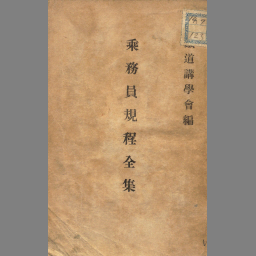 道講學會編
乘務員規程全集